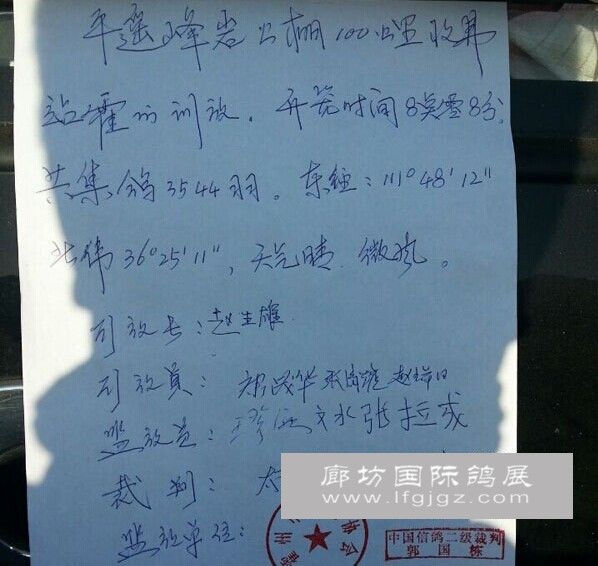 平遥峰岩公棚100公里收费
站霍州训放。开笼时间8点零8分。
共集鸽3544羽。东经:111°48'12"
北纬36°25'11",天气晴.微风。
司放长:赵生雄
司放员:
监放员:文水张拉成
裁判:太
监放单位:
廊坊国际鸽展
www.lfgjgz.com
中国信鸽二级裁判
郭国栋